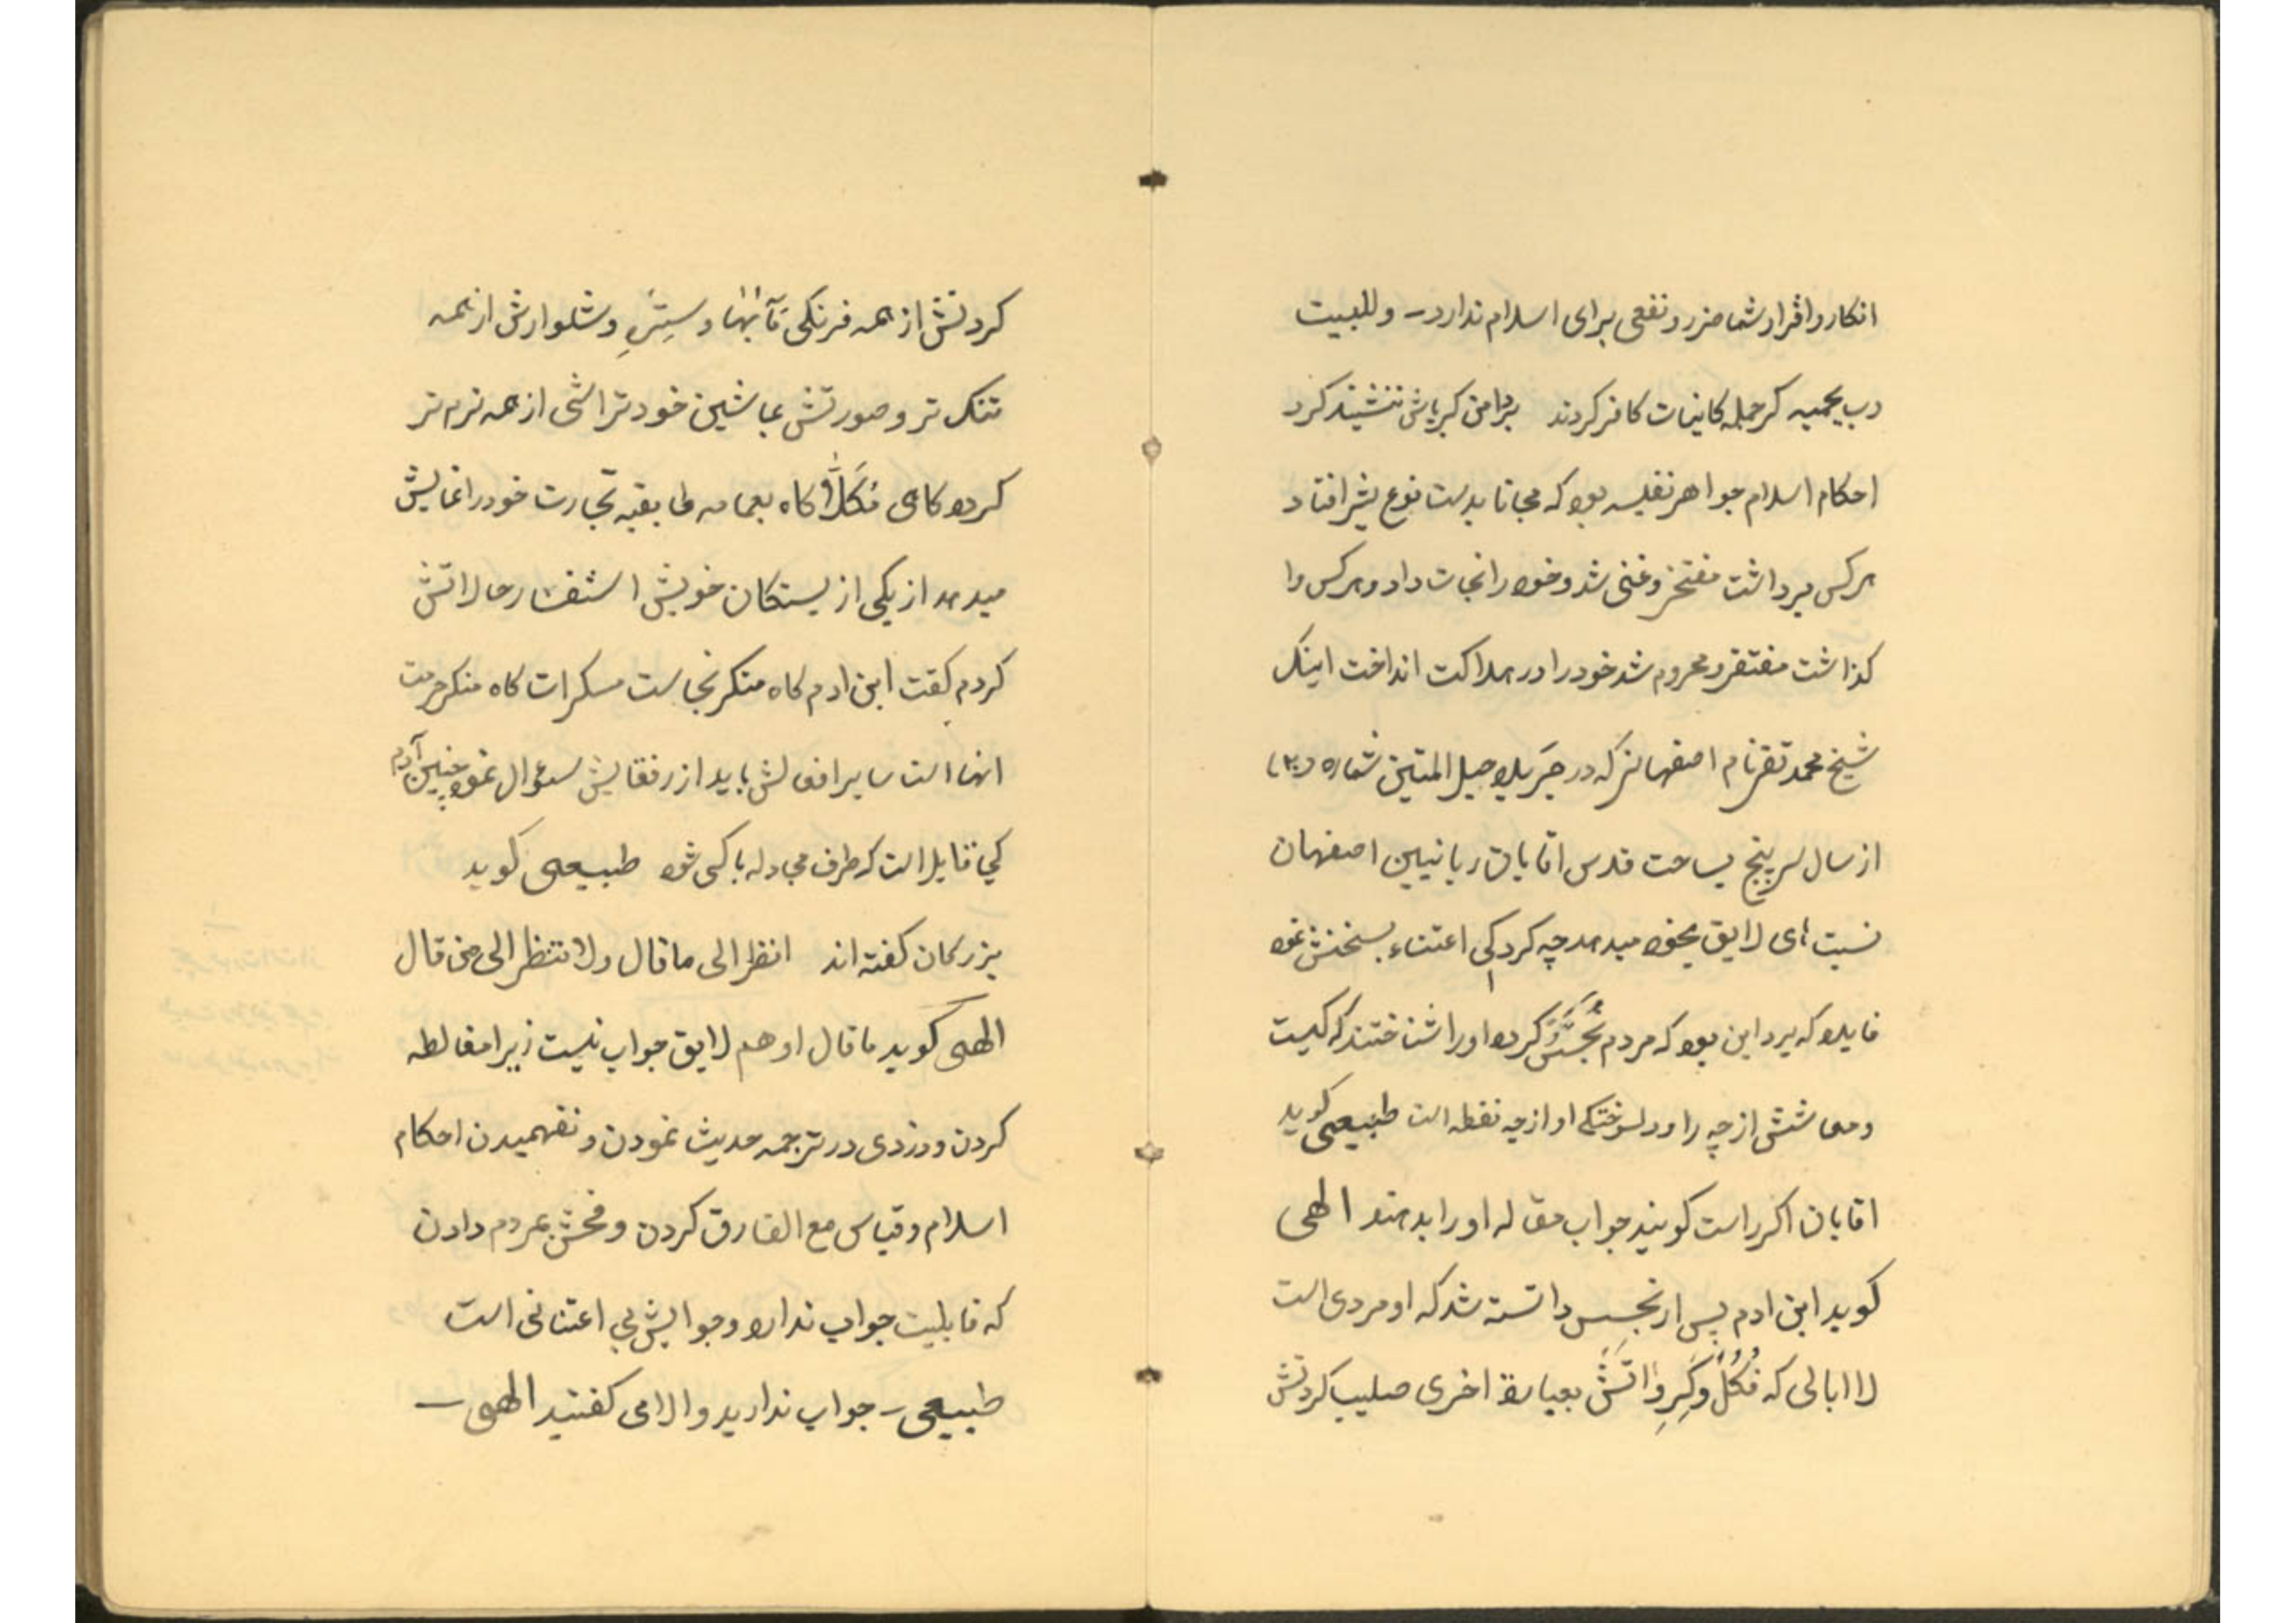 انکار و اقرار شما ضرر و نفعی برای اسلام ندارد – و للبیت
رب یحمیه گر جمله کاینات کافر کردند بر دامن کبریاش ننشیند کرد
احکام اسلام جواهر نفیسه بود که مجانا بدست نوع بشر افتاد
هرکس برداشت مفتخر و غنی شد و خود را نجات داد و هرکس وا
کذاشت مفتقر و محروم شد خود را در هلاکت انداخت اینک
شیخ محمد تقی نام اصفهانی که در جریده حبل المتین شماره (۳۰)
از سال سر پنج بساحت قدس اقایان ربانیین اصفهان
نسبت های لایق بخود میدهد چه کرد کی اعتناء بسخنش نمود
فایده که برد این بود که مردم تجسس کرده اورا شناختند که کیست
و معاشش از چه راه و دلسوختکی او از چه نقطه است طبیعی کوید
اقایان اکر راست کویند جواب مقاله اورا بدهند الهی
کوید این ادم پس از تجسس دانسته شد که او مردی است
لا ابالی که فکل و کرواتش بعبارة اخری صلیب کردنش
کردنش از همه فرنکی مآبها و ستره و شلوارش از همه
تنک تر و صورتش بماشین خود تراشی از همه نرم تر
کرده کاهی مکلا و کاه بعمامه طابقیه تجارت خود را نمایش
میدهد از یکی از بستکان خویش استفسار حالاتش
کردم کفت این ادم کاه منکر نجاست مسکرات کاه منکر حرمت
انها است سایر افعالش باید از رفقایش سئوال نمود چنین آدم
کی قابل است که طرف مجادله با کسی شود طبیعی کوید
بزرکان کفته اند انظر الی ما قال ولا تنظر الی من قال
الهی کوید ما قال او هم لایق جواب نیست زیرا مغالطه
کردن و دزدی در ترجمه حدیث نمودن و نفهمیدن احکام
اسلام و قیاس مع الفارق کردن و فحش بمردم دادن
که قابلیت جواب ندارد و جوابش بی اعتنائی است
طبیعی – جواب ندارید و الا می کفتید الهی –